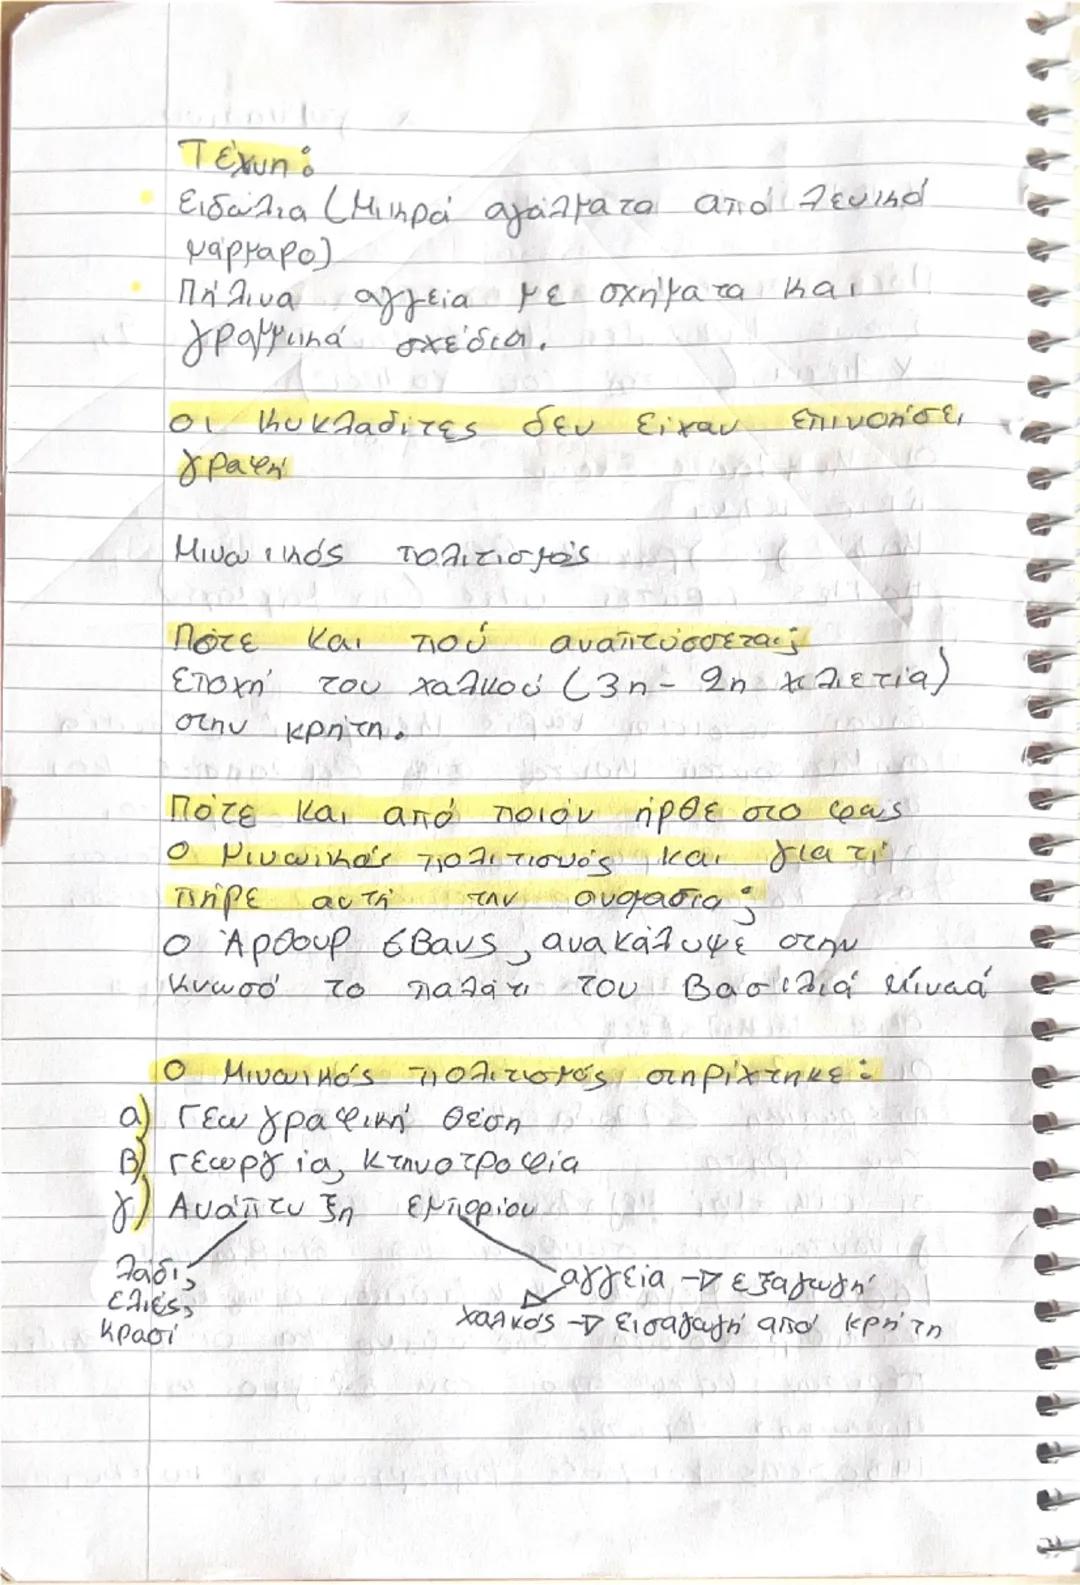 Τέχνη:
Ειδώλια (Μικρά αγάλματα από λευκό
μάρμαρο)
Πήλινα αγγεία με σχήματα και
γραμμικά σχέδια.
οι Κυκλαδίτες δεν είχαν επινοήσει
γραφή
Μινωικός πολιτισμός
Πότε και πού αναπτύσσεται;
Εποχή του χαλκού (3η - 2η χιλιετία)
στην κρήτη.
Πότε και από ποιόν ήρθε στο φως
ο Μινωικός πολιτισμός και γιατί
πήρε αυτή την ονομασία;
ο Άρθουρ έβανς, ανακάλυψε στην
Κνωσό το παλάτι του Βασιλιά Μίνωά
Ο Μινωικός πολιτισμός στηρίχτηκε:
α) Γεωγραφική θέση
β) Γεωργία, Κτηνοτροφία
γ) Ανάπτυξη εμπορίου
λάδι,
ελιές,
κρασί
αγγεία → εξαγωγή
χαλκός → εισαγωγή από κρήτη